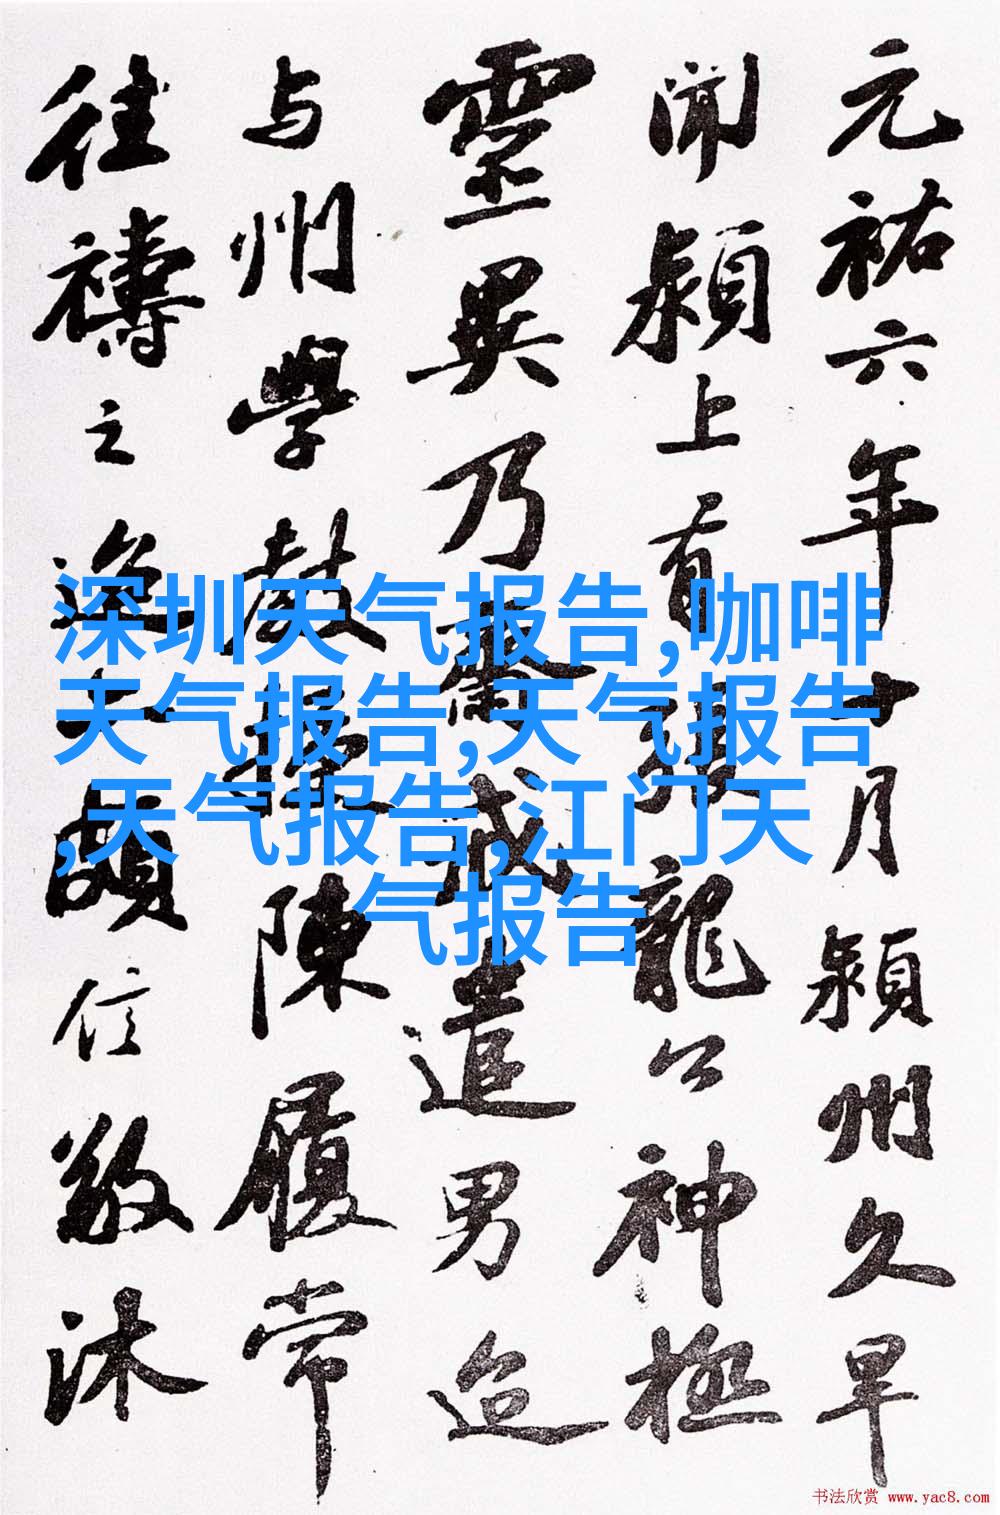 元祐六年十月颍州久旱
闻颍上有張龍公神極
靈異乃齋戒遣男迨
与州學教授陳履常
往禱之迨亦頗信敬沐
深圳天气报告,咖啡
天气报告,天气报告
,天气报告,江门天
气报告
书法欣赏 www.yac8.com